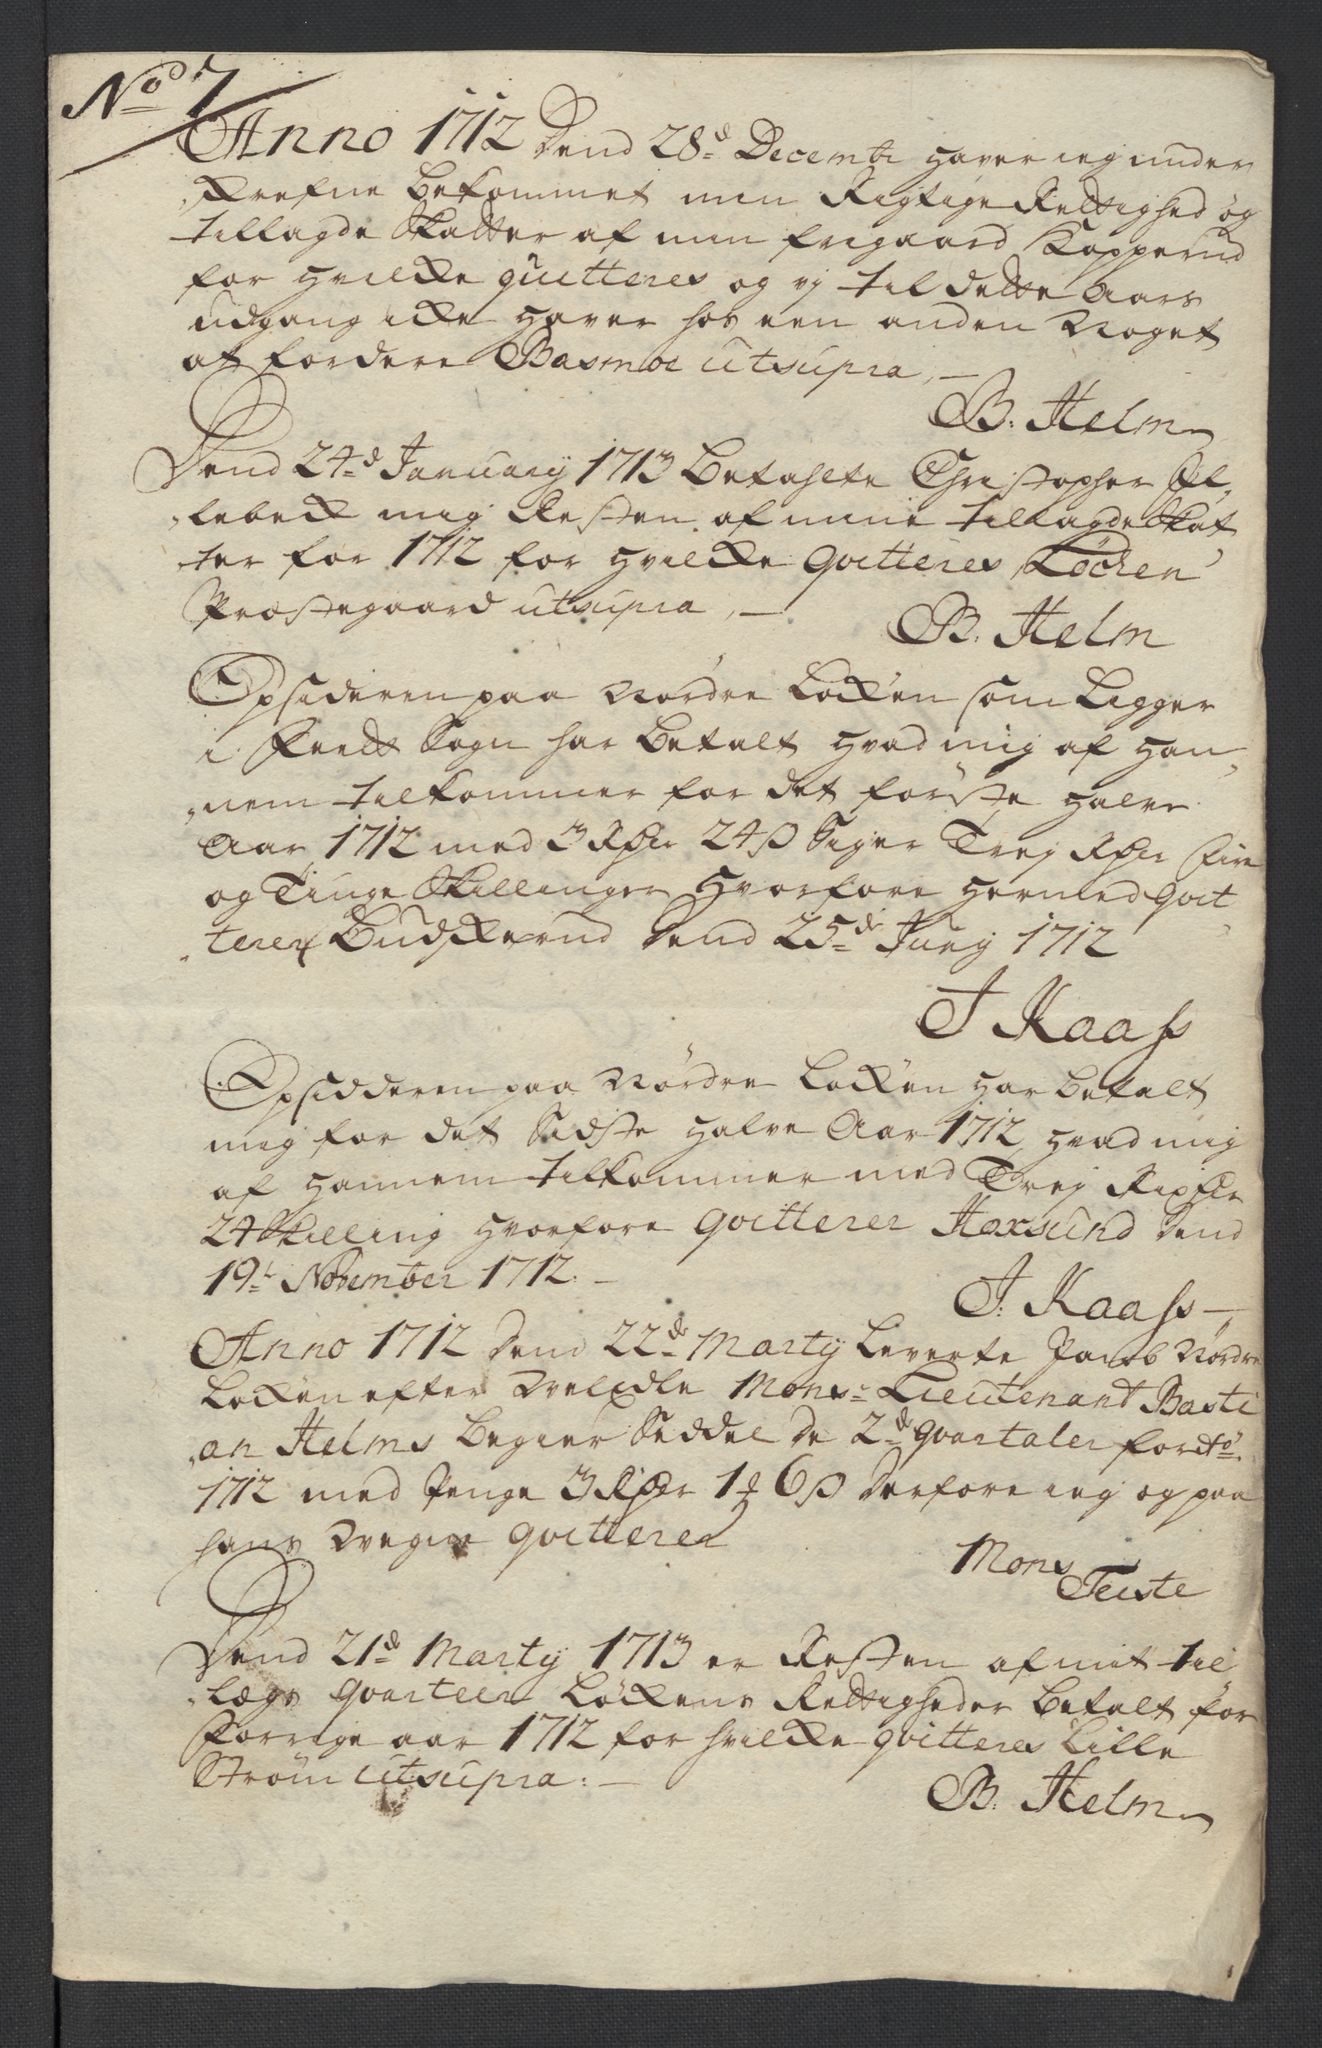 No 7
Anno 1712 Dend 28d Decembr haver ieg under
skrefne bekommet min Rigtige Rettighed og
tillagde Skatter af min frigaard Kopperud
for hvilke quitteres og vj til dette Aars
udgang icke haver hos een anden Noget
at fordere Basmoe utsupra,
B. Helm
Dend 24d January 1713 betahlte Christopher
lebeck mig Resten af mine tillagde Skat
ter for 1712 for hvilke qvitteres Löchen
Præstegaard utsupra,
B. Helm
Opsideren paa Nordre Löcken som Ligger
i Sogn har betalt hvad mig af han
nem tilkommer for det förste halve
Aar 1712 med 3 Rdr 24 ß Siger Trej Rdr Fire
og Tiuge Skillinger hvorfore hermed qvit
teres Budskerud Dend 25de Juny 1712
J Kaass
Opsidderen paa Nördre Löcken har betalt
mig for det Sidste halve Aar 1712 hvad mig
af hannem tilkommer med Trej Rixdr
24 Skilling hvorfore qvitterer Hoxsund Dend
19t November 1712.
J: Kaass
Anno 1712 Dend 22de Marty Leverte Jacob Nördre
Löcken efter Velædle Monsr Lieutenant Basti
an Helms Begier Seddel De 2de qvartaler for Ao
1712 med Penge 3 Rdr 1 6 ß Derfore ieg og paa
hans Vegne qvitterer
Mons
Teiste
Dend 21d Marty 1713 er Resten af mit til
lægs qvarteer Löckens Rettigheder betalt for
forrige aar 1712 for hvilke qvitteres Lille
Ström utsupra:
B. Helm